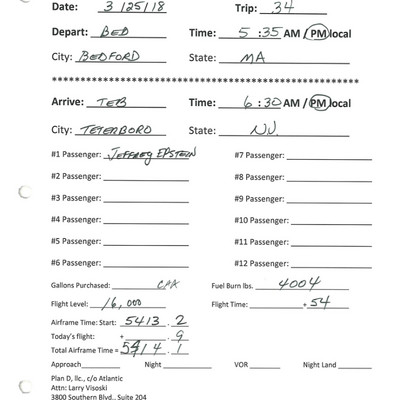 Date: 3/25/18 Trip: 34
Depart: BED Time: 5:35 AM / PM local
City: BEDFORD State: MA
****************************************************
Arrive: TEB Time: 6:30 AM / PM local
City: TETERBORO State: NJ
#1 Passenger: JEFFREY EPSTEIN #7 Passenger:
#2 Passenger: #8 Passenger:
#3 Passenger: #9 Passenger:
#4 Passenger: #10 Passenger:
#5 Passenger: #11 Passenger:
#6 Passenger: #12 Passenger:
Gallons Purchased: Fuel Burn lbs. 4004
Flight Level: 16,000 Flight Time: +54
Airframe Time: Start: 5413.2
Today's flight: + .9
Total Airframe Time = 5414.1
Approach Night VOR Night Land
Plan D, llc., c/o Atlantic
Attn: Larry Visoski
3800 Southern Blvd., Suite 204